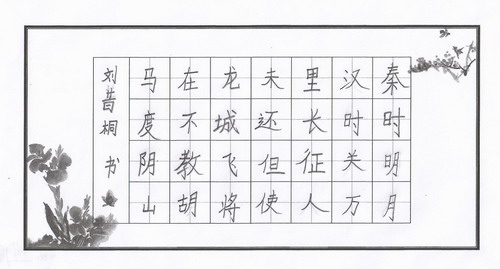 秦时明月
汉时关万
里长征人
未还但使
龙城飞将
在不教胡
马度阴山
刘昔桐 书